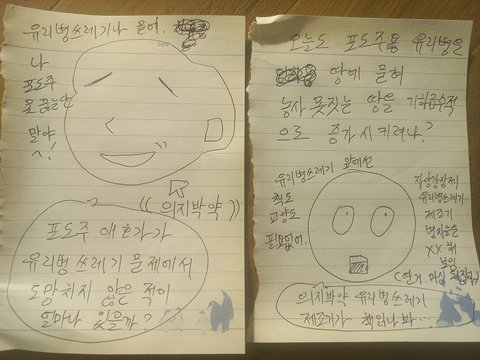 유리병쓰레기나 묻어.
나
포도주
못 끊는단
말야
~!
(( 의지박약 ))
포도주 애호가가
유리병 쓰레기 문제에서
도망치지 않은 적이
얼마나 있을까?
오늘도 포도주 유리병은
땅에 묻혀
농사 못짓는 땅을 기하급수적
으로 증가시키려나?
유리병쓰레기 앞에선
책도
교양도
필요없어.
유리병쓰레기
제조기
XX 책
보임
의지박약 유리병쓰레기
제조기가 책읽나봐...